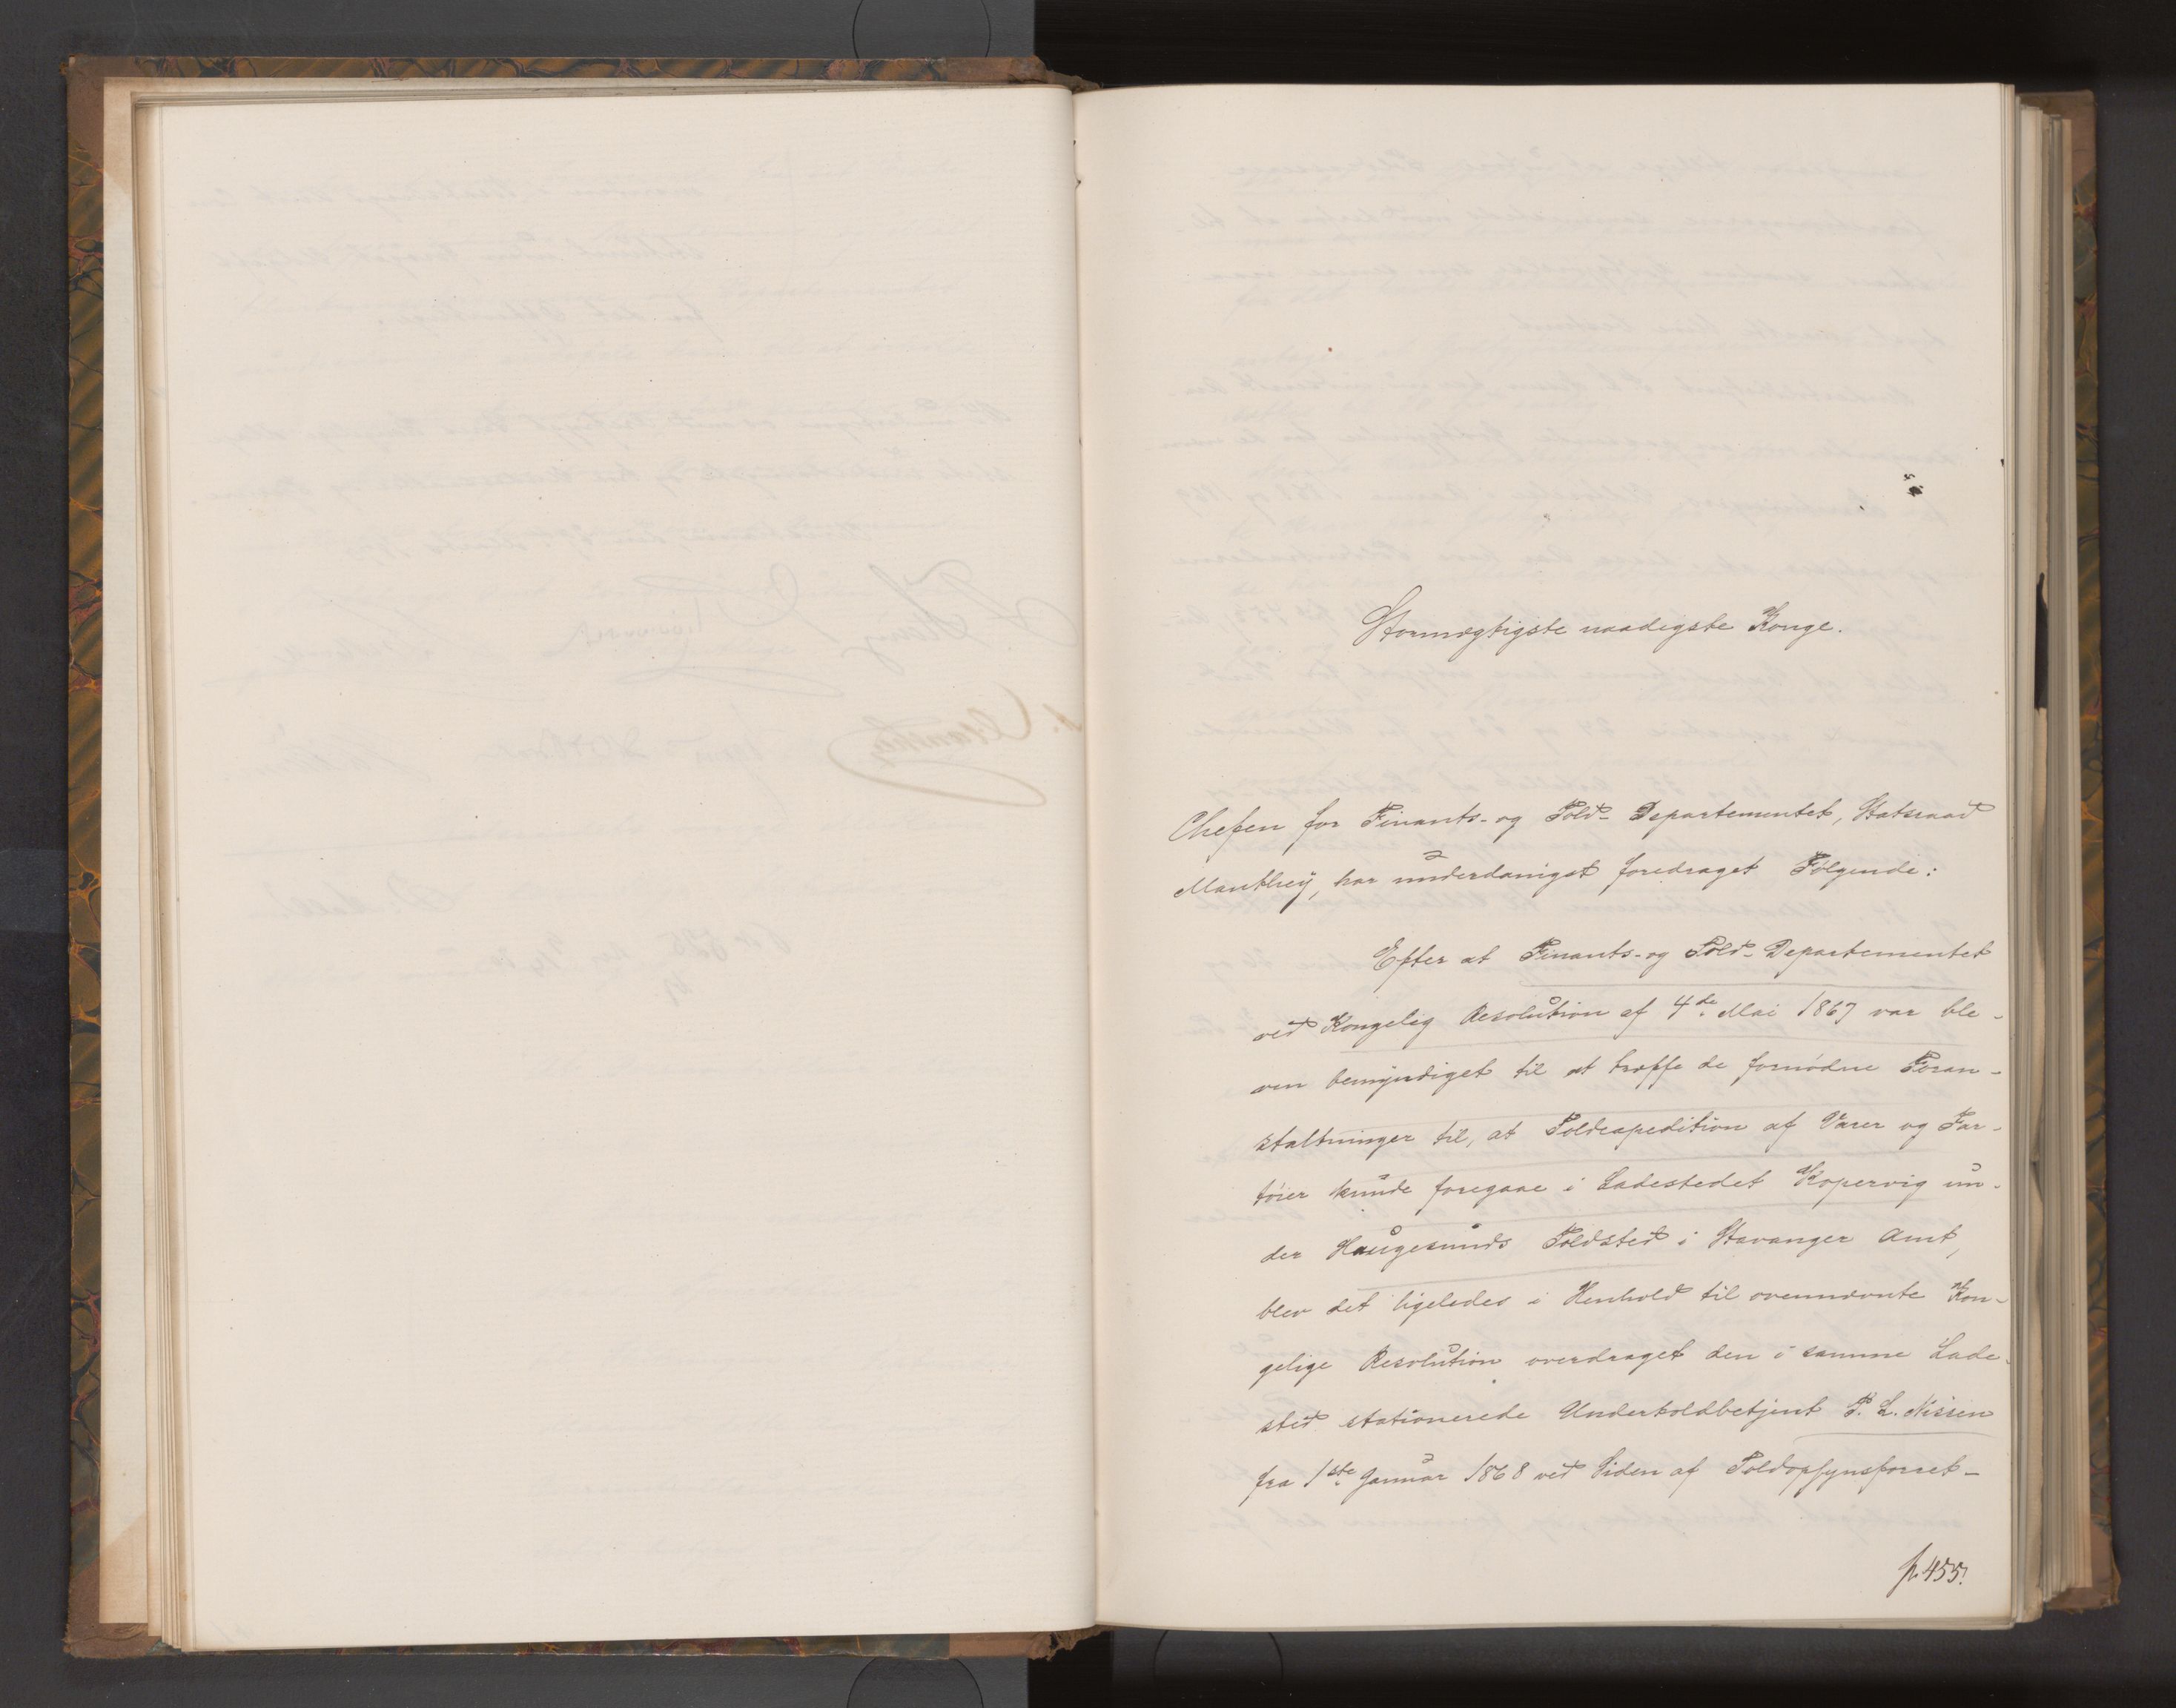 Stormægtigste naadigste Konge.
Chefen for Finants- og Told-Departementet, Statsraad
Manthey, har underdanigst foredraget Følgende:
Efter at Finants- og Told-Departementet
ved Kongelig Resolution af 4de Mai 1867 var ble-
ven bemyndiget til at træffe de fornødne Foran-
staltninger til, at Toldexpedition af Varer og Far-
tøier kunde foregaae i Ladestedet Kopervig un-
der Haugesunds Toldsted i Stavanger Amt,
blev det ligeledes i Henhold til ovennævnte Kon-
gelige Resolution overdraget den i samme Lade-
sted stationerede Undertoldbetjent P. L. Nissen
fra 1ste Januar 1868 ved Siden af Toldopsynsforret-
p. 455.